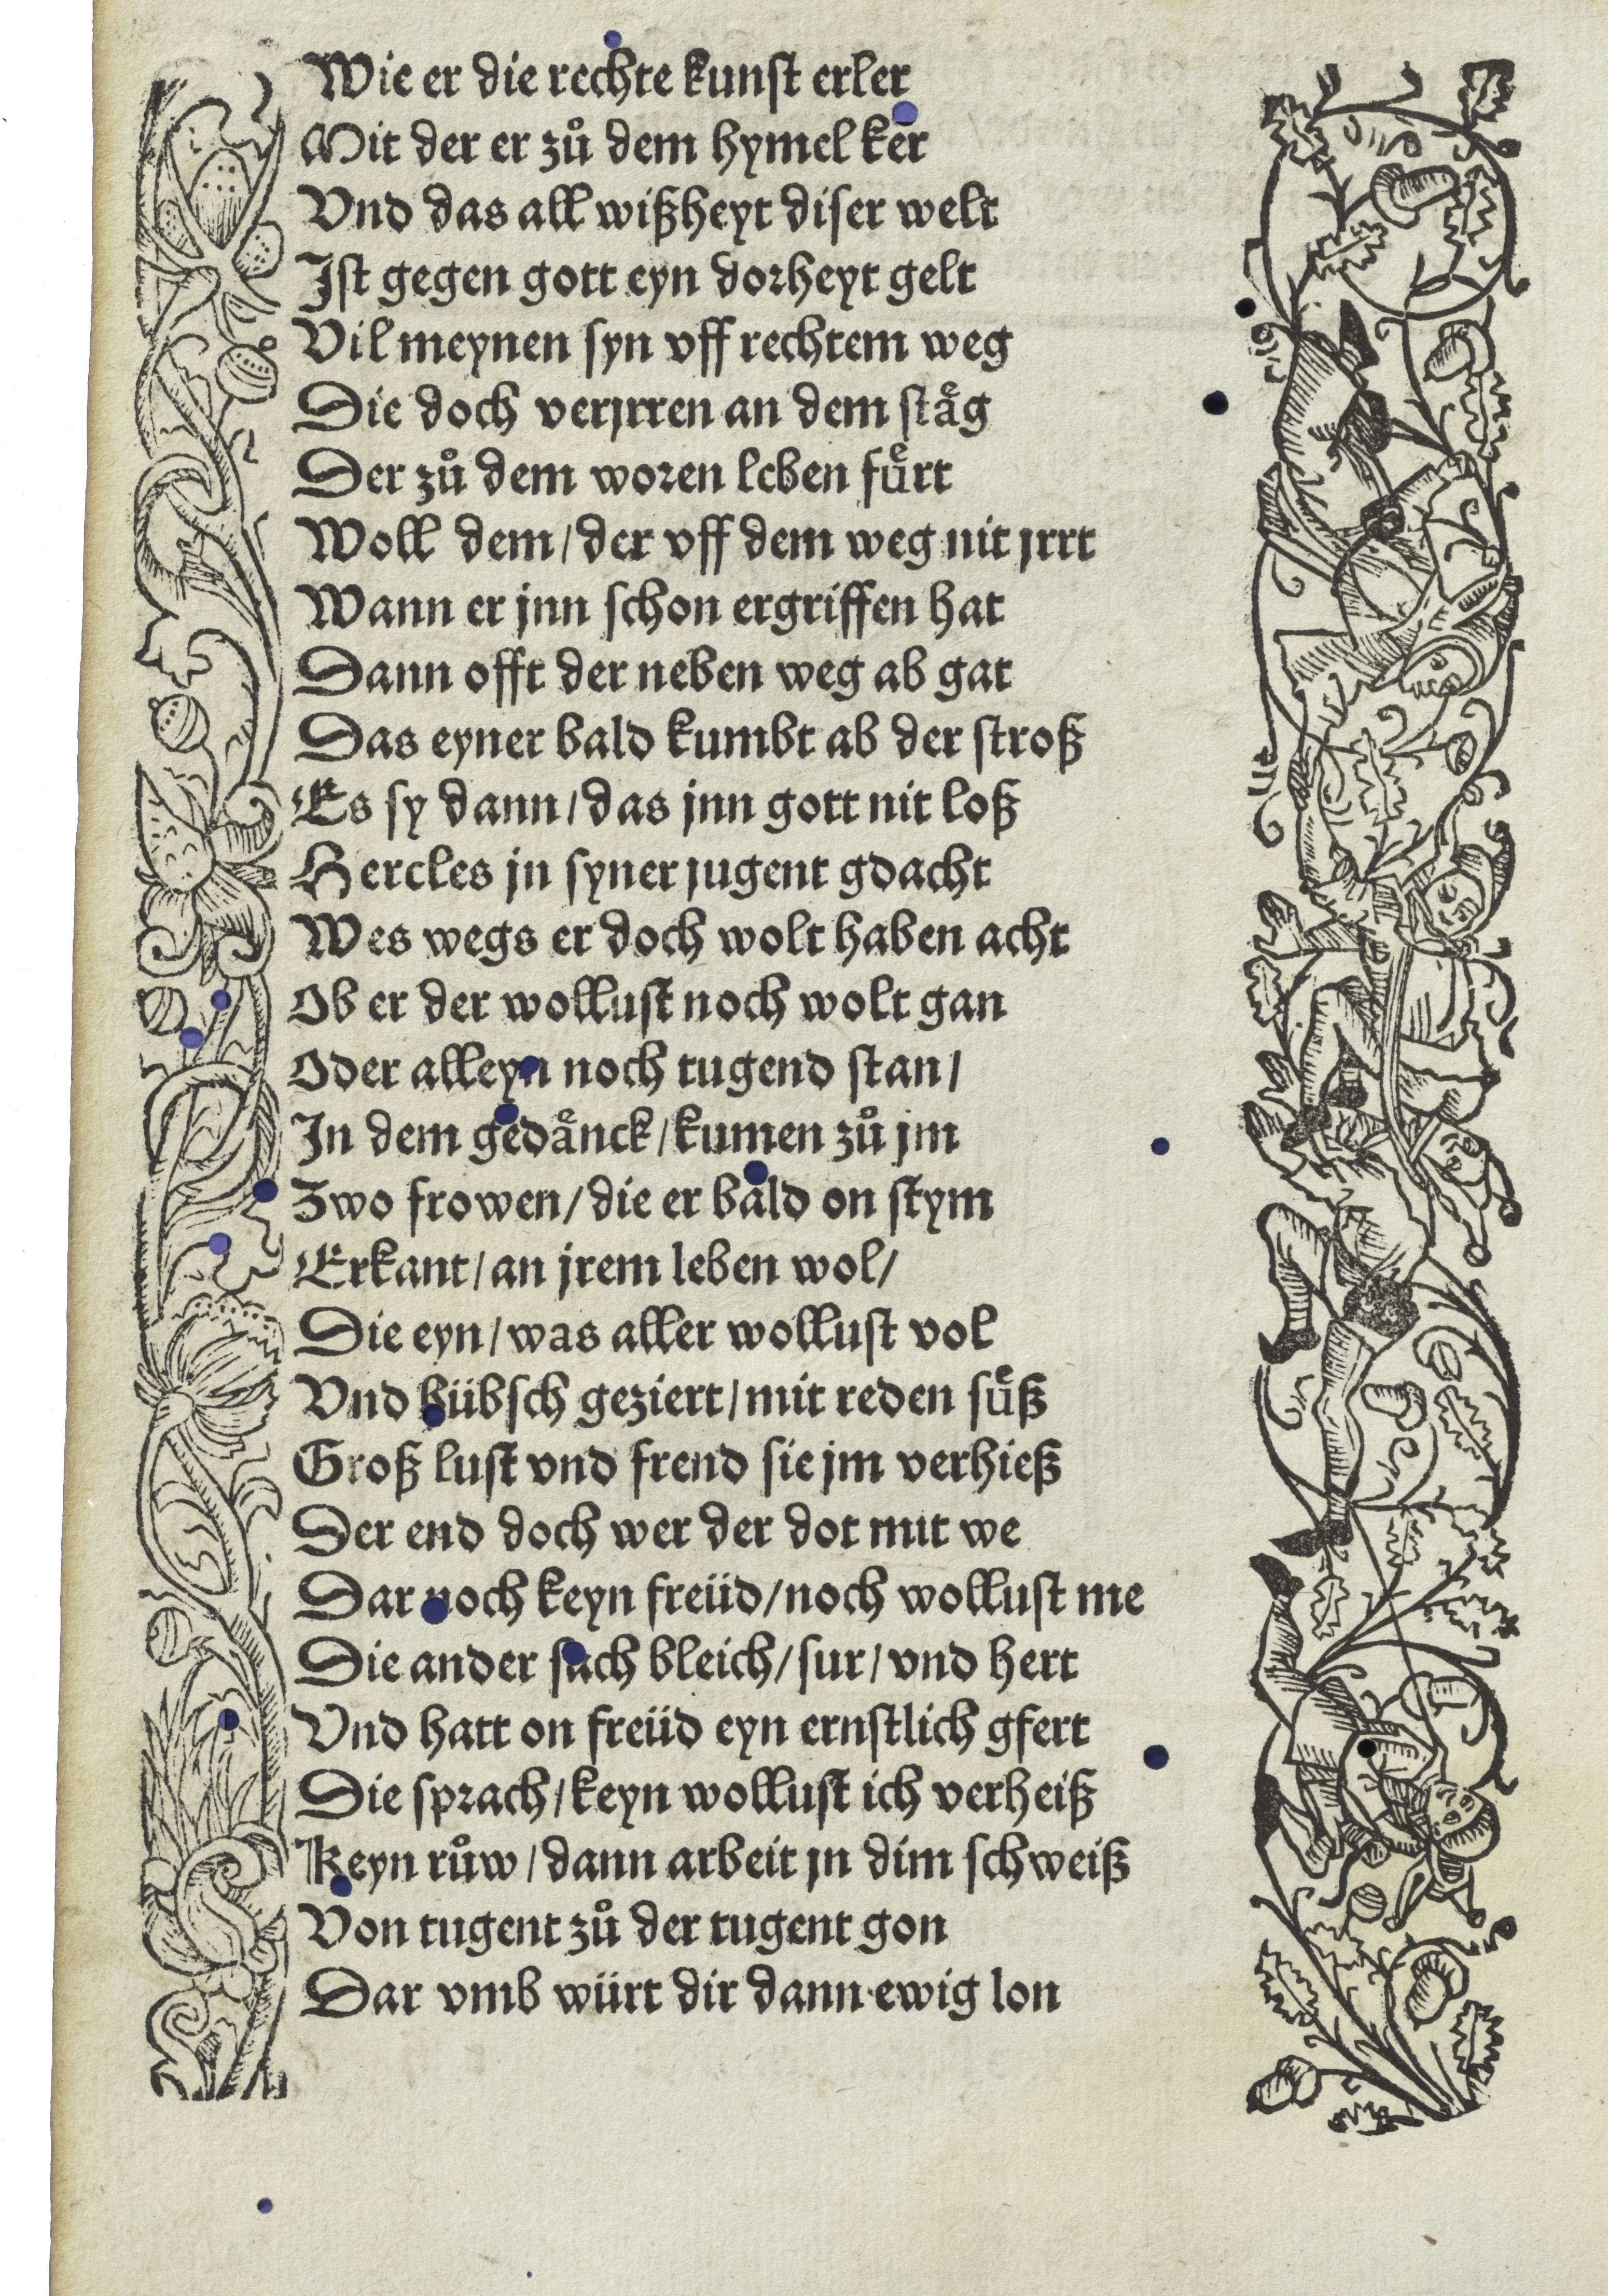 Wie er die rechte kunst erler
Mit der er zů dem hymel ker
Vnd das all wißheyt diser welt
Jst gegen gott eyn dorheyt gelt
Vil meynen syn vff rechtem weg
Die doch verjrren an dem staͤg
Der zů dem woren leben fuͤrt
Woll dem / der vff dem weg nit jrrt
Wann er jnn schon ergriffen hat
Dann offt der neben weg ab gat
Das eyner bald kumbt ab der stroß
Es sy dann / das jnn gott nit loß
Hercles jn syner jugent gdacht
Wes wegs er doch wolt haben acht
Ob er der wollust noch wolt gan
Oder alleyn noch tugend stan /
Jn dem gedaͤnck / kumen zů jm
Zwo frowen / die er bald on stym
Erkant / an jrem leben wol /
Die eyn / was aller wollust vol
Vnd hübsch geziert / mit reden suͤß
Groß lust vnd frend sie jm verhieß
Der end doch wer der dot mit we
Dar noch keyn freüd / noch wollust me
Die ander sach bleich / sur / vnd hert
Vnd hatt on freüd eyn ernstlich gfert
Die sprach / keyn wollust ich verheiß
Keyn růw / dann arbeit jn dim schweiß
Von tugent zů der tugent gon
Dar vmb würt dir dann ewig lon